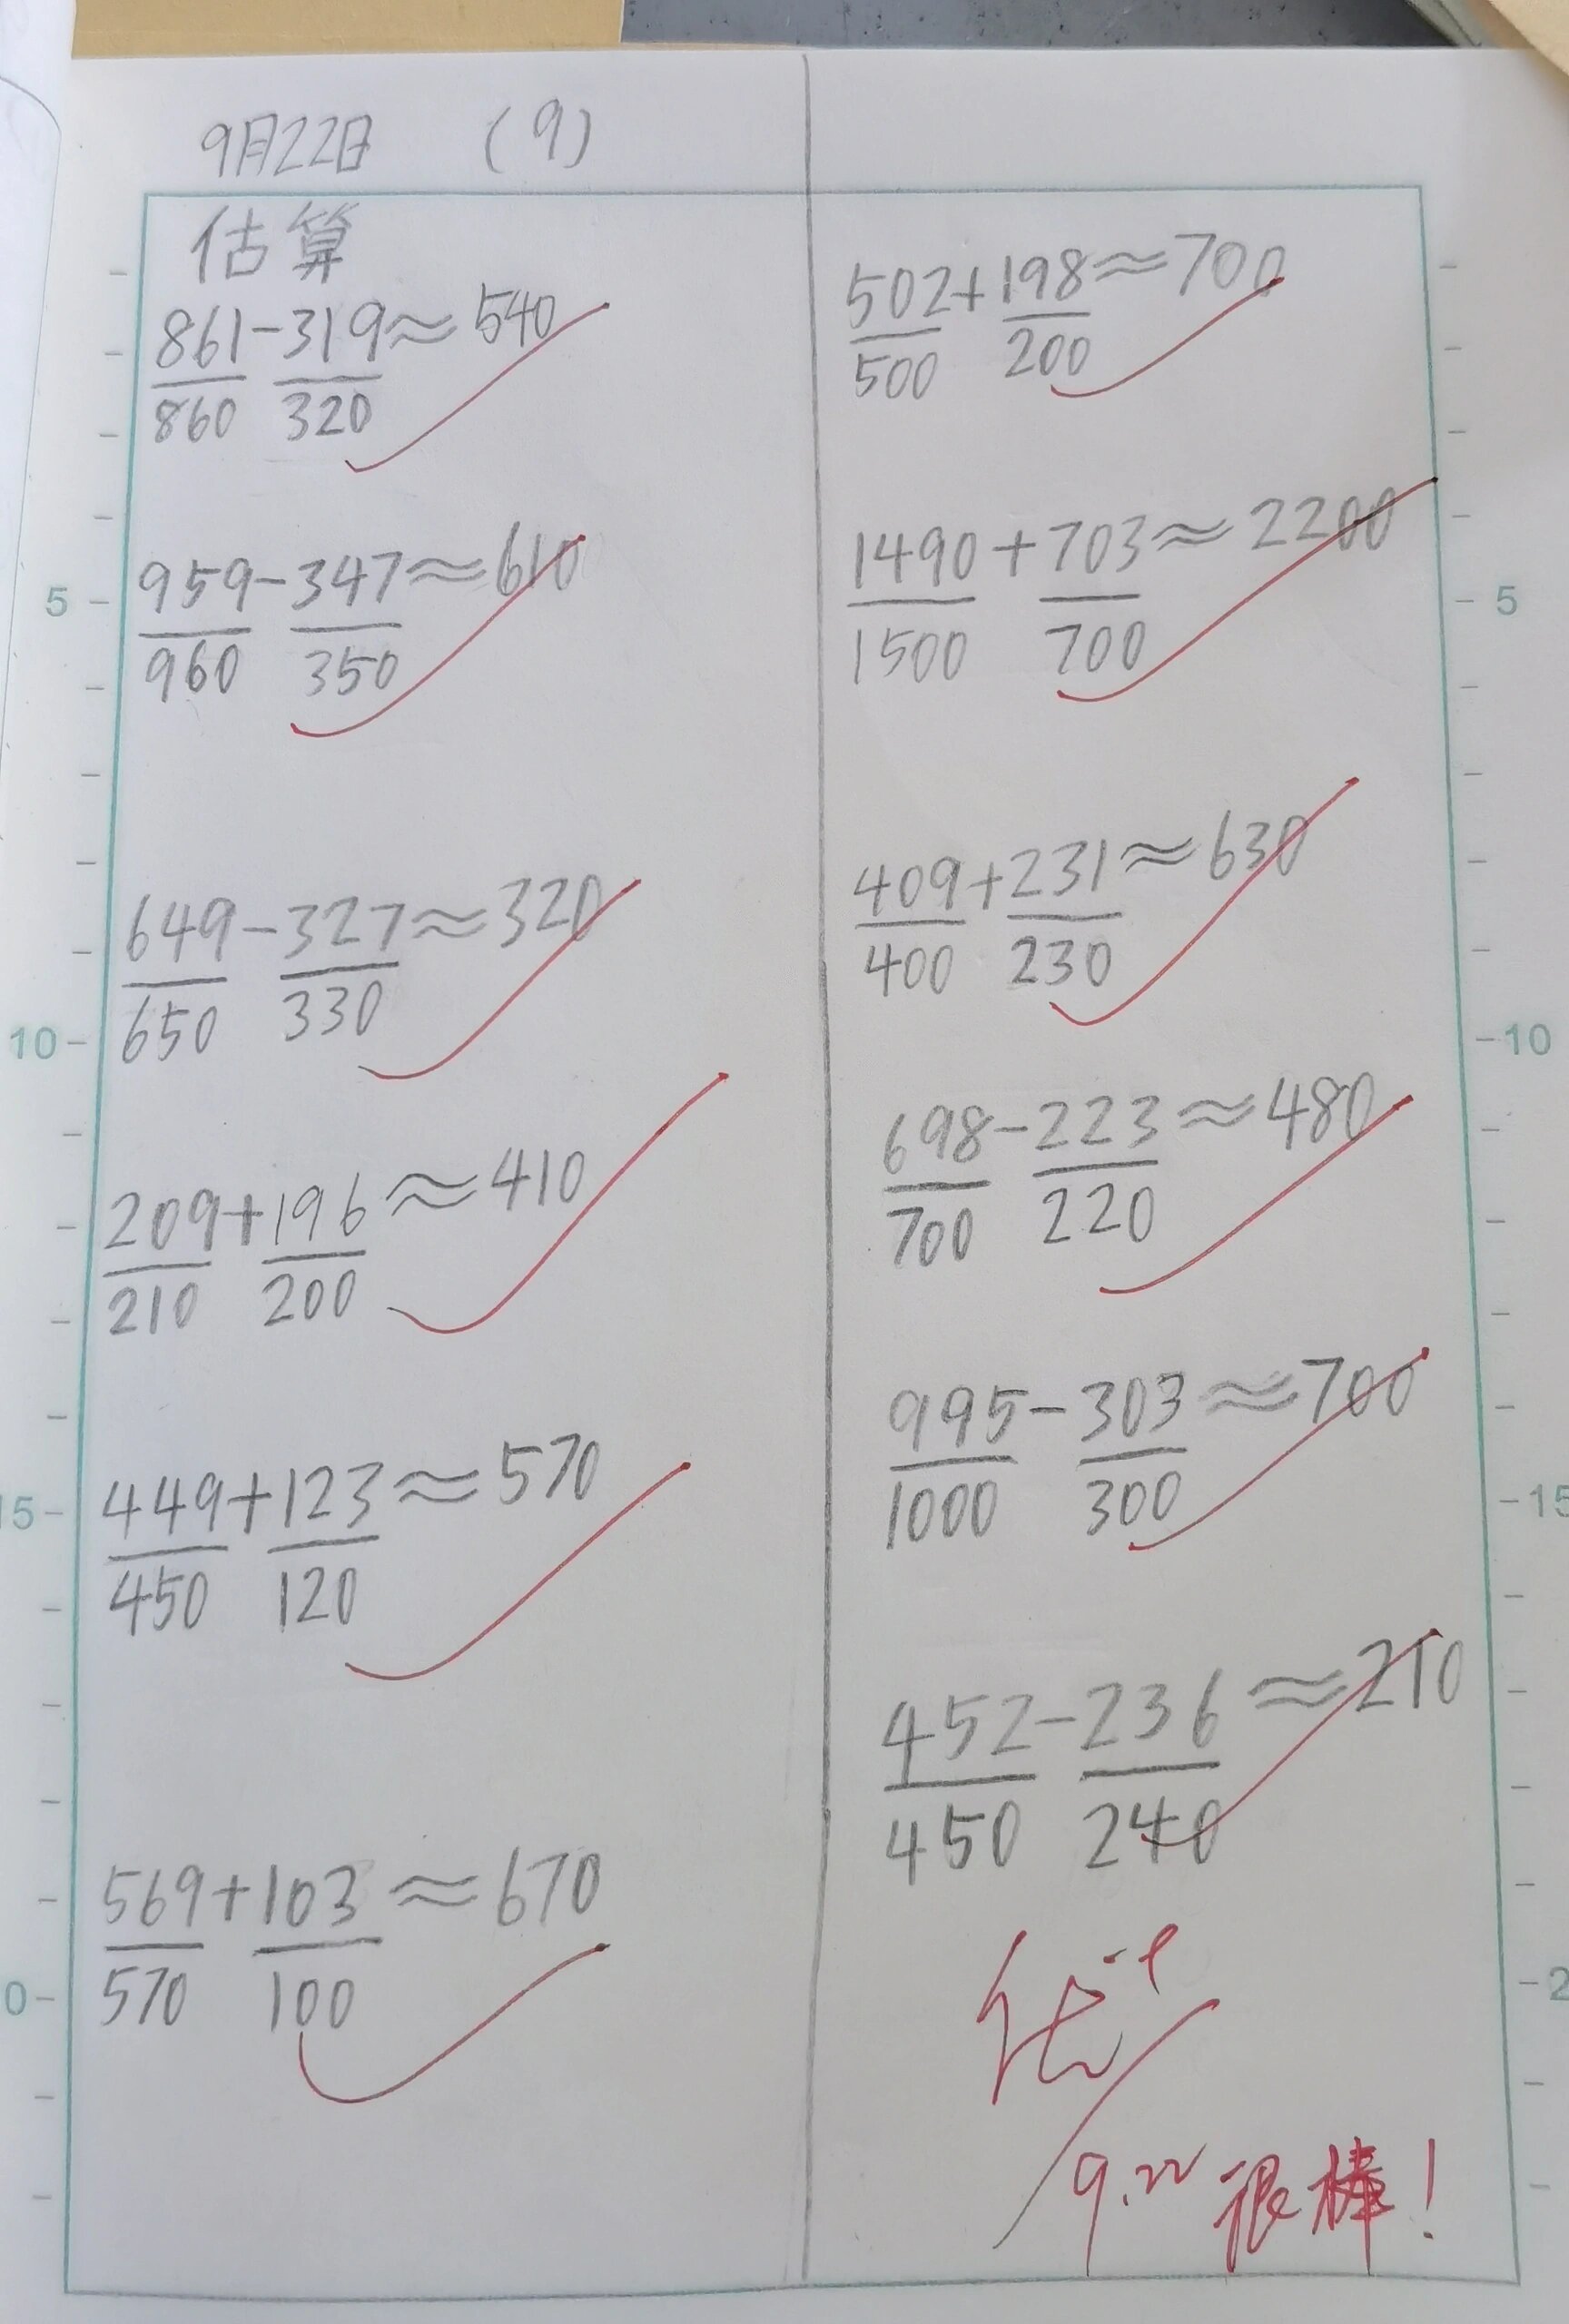 9月22日 (9)
估算
861-319≈540
860 320
959-347≈610
960 350
649-327≈320
650 330
209+196≈410
210 200
449+123≈570
450 120
569+103≈670
570 100
502+198≈700
500 200
1490+703≈2200
1500 700
409+231≈630
400 230
698-223≈480
700 220
995-303≈700
1000 300
452-236≈210
450 240
优
9.22 很棒!
5
10
15
0
5
10
15
2